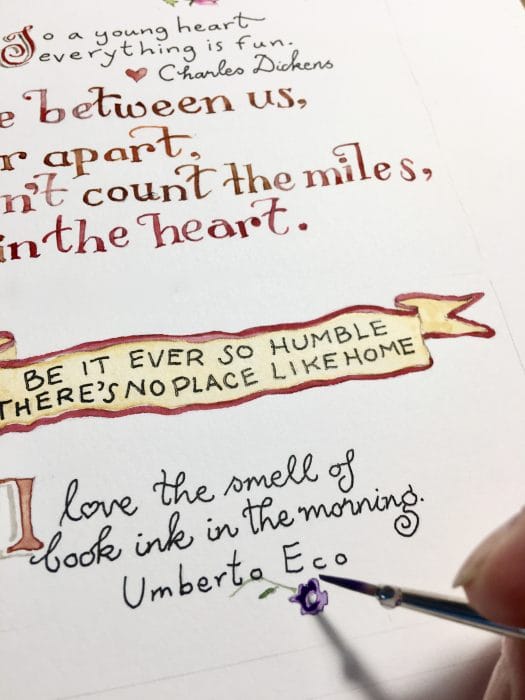 To a young heart
everything is fun.
Charles Dickens
e between us,
r apart,
n't count the miles,
in the heart.
BE IT EVER SO HUMBLE
THERE'S NO PLACE LIKE HOME
I love the smell of
book ink in the morning.
Umberto Eco